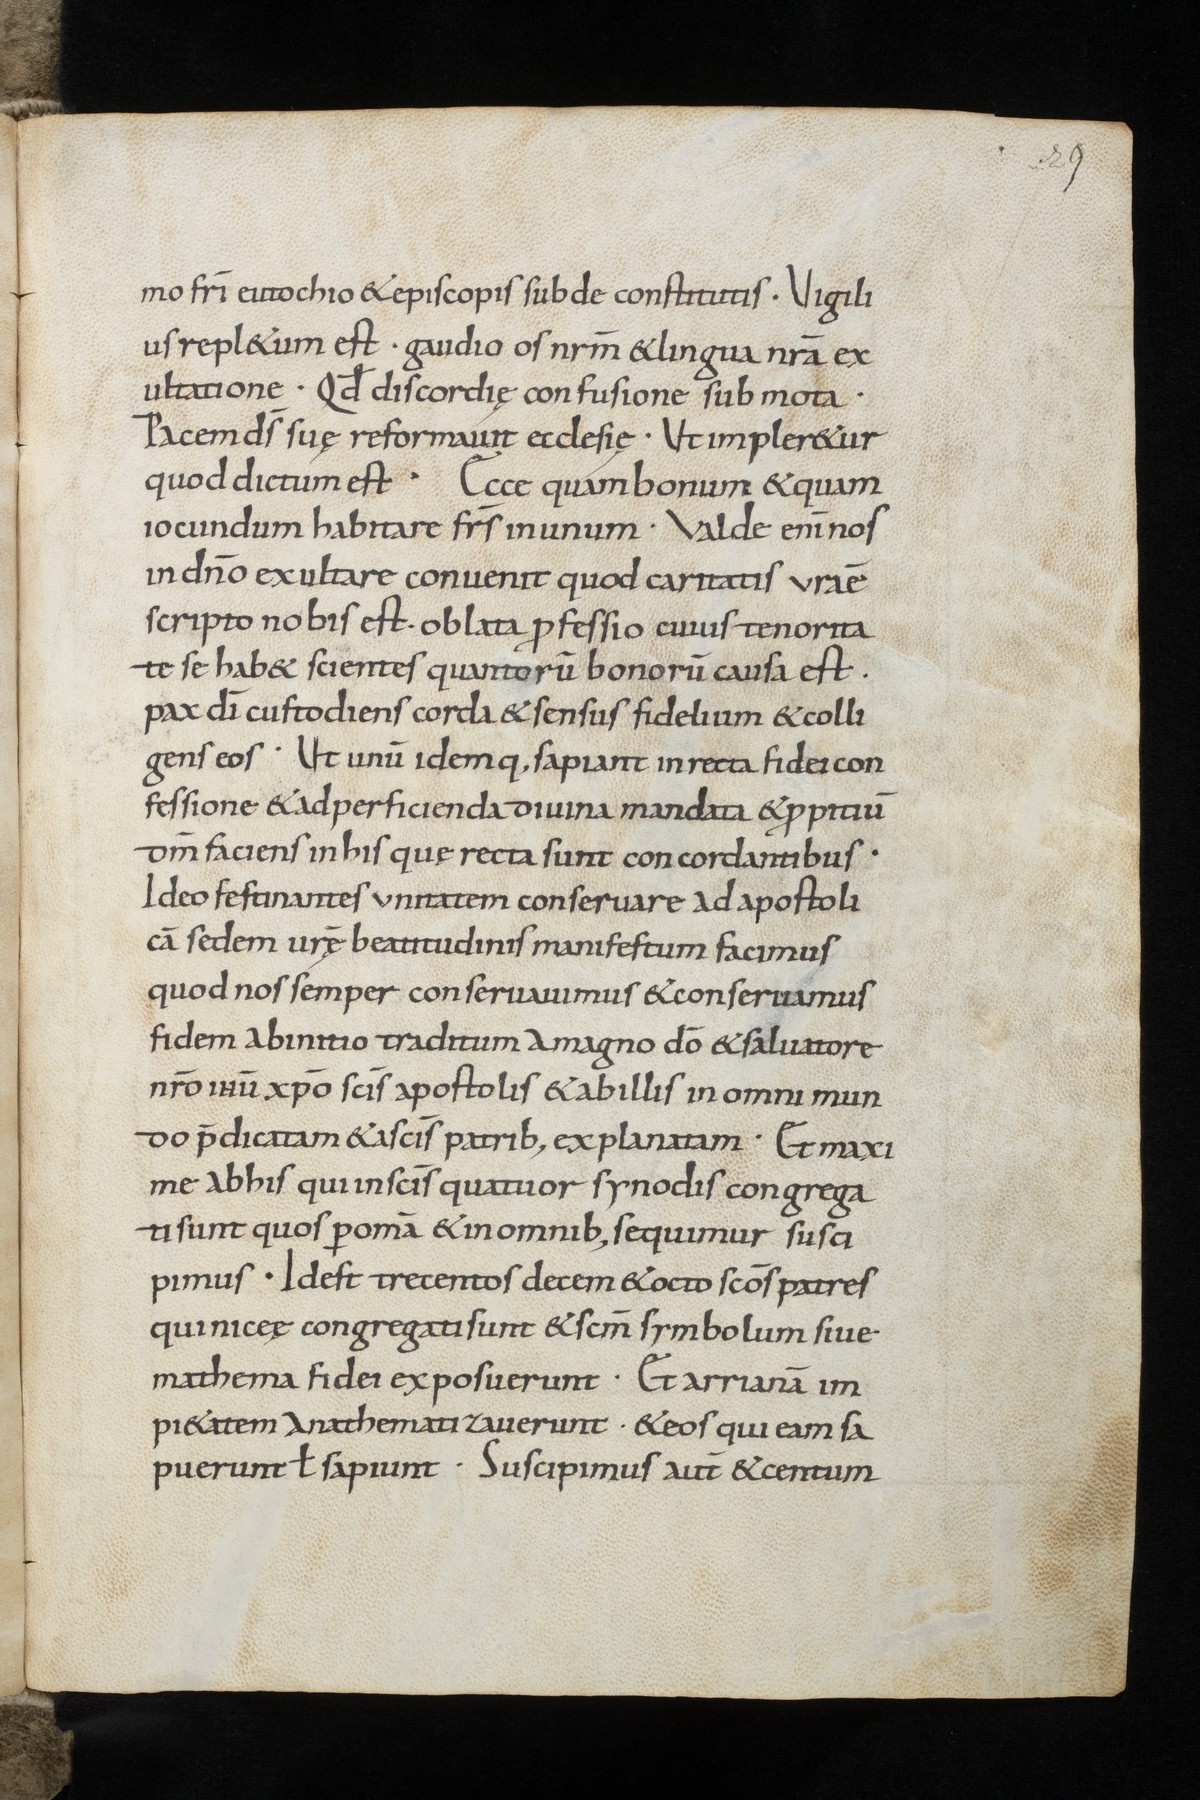 29
mo frī eutochio & episcopis sub de constitutis · Vigili
us repl&um est · gaudio os nrm̄ & lingua nrā ex
ultatione · Qd̄ discordię confusione sub mota ·
Pacem ds̄ suę reformauit ecclesię · Ut impler&ur
quod dictum est · Ecce quam bonum & quam
iocundum habitare frs̄ in unum · Valde enī nos
in dn̄o exultare conuenit quod caritatis vraē
scripto nobis est · oblata ꝓfessio cuius tenor ita
te se hab& scientes quantorū bonorū causa est ·
pax dī custodiens corda & sensus fidelium & colli
gens eos · Ut unū idemq, sapiant in recta fidei con
fessione & ad perficienda diuina mandata & ꝓpitiū
dm̄ faciens in his quę recta sunt concordantibus ·
Ideo festinantes vnitatem conseruare ad apostoli
cā sedem urę̄ beatitudinis manifestum facimus
quod nos semper conseruauimus & conseruamus
fidem ab initio traditum a magno dō & saluatore
nrō ihū xpō scīs apostolis & ab illis in omni mun
do p̄dicatam & a scīs patrib, explanatam · Et maxi
me ab his qui in scīs quatuor synodis congrega
ti sunt quos ꝑ omā & in omnib, sequimur susci
pimus · Id est trecentos decem & octo scōs patres
qui niceę congregati sunt & scm̄ symbolum siue
mathema fidei exposuerunt · Et arrianā im
pi&atem anathematizauerunt · & eos qui eam sa
puerunt ł sapiunt · Suscipimus aut̄ & centum